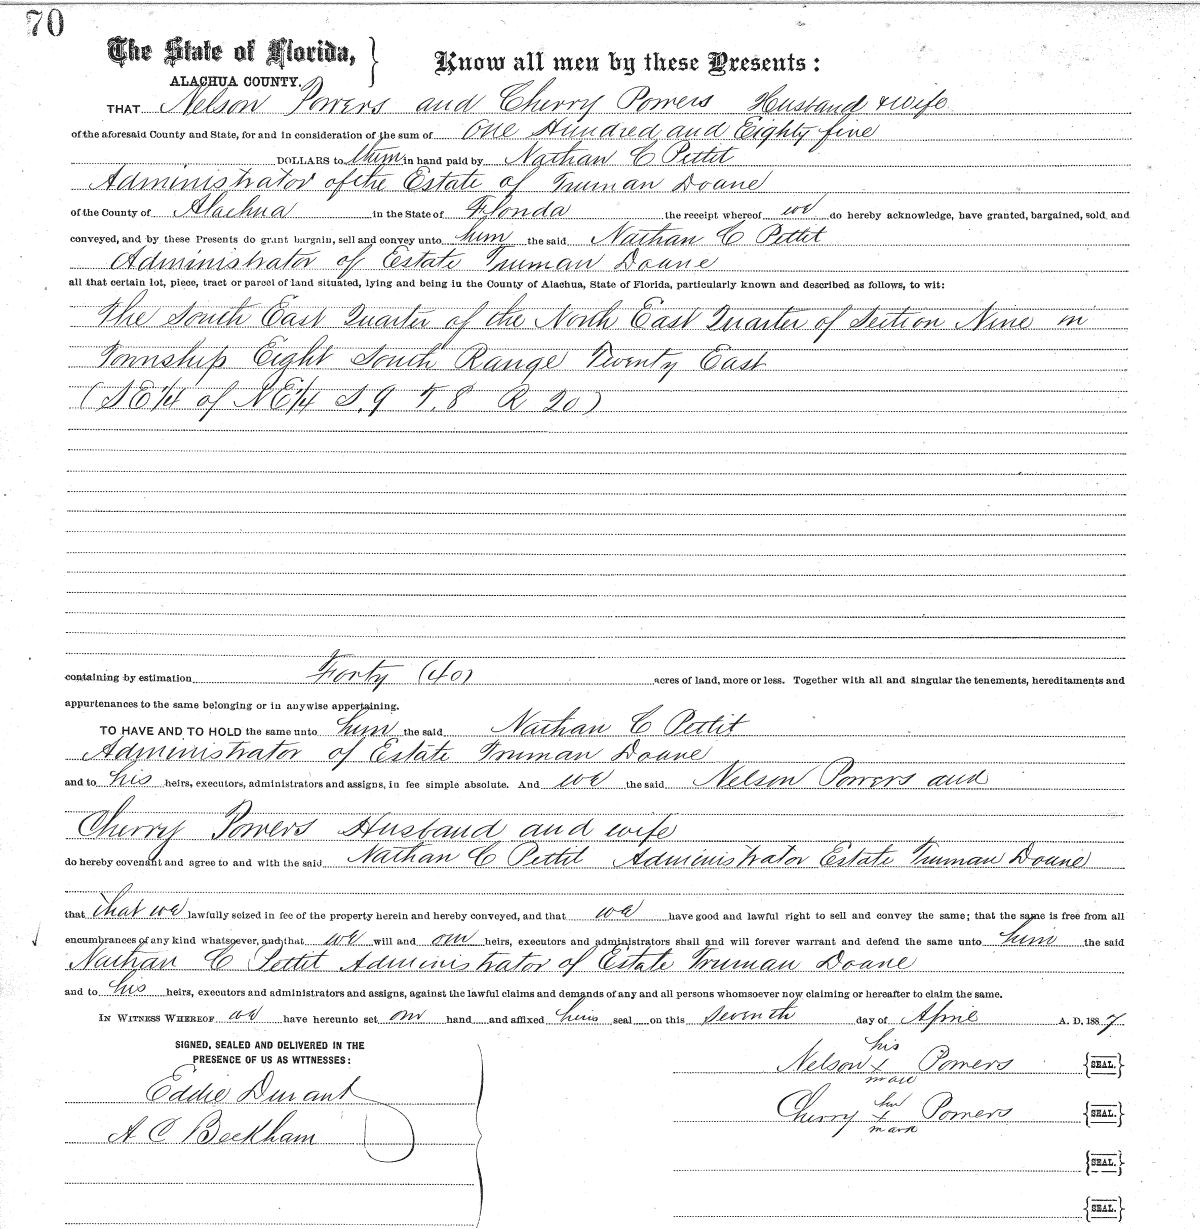 70
The State of Florida, } Know all men by these Presents:
ALACHUA COUNTY.
THAT Nelson Powers and Cherry Powers Husband & wife
of the aforesaid County and State, for and in consideration of the sum of One Hundred and Eighty five
DOLLARS to them in hand paid by Nathan C Pettit
Administrator of the Estate of Truman Doane
of the County of Alachua in the State of Florida the receipt whereof we do hereby acknowledge, have granted, bargained, sold, and
conveyed, and by these Presents do grant bargain, sell and convey unto him the said Nathan C Pettit
Administrator of Estate Truman Doane
all that certain lot, piece, tract or parcel of land situated, lying and being in the County of Alachua, State of Florida, particularly known and described as follows, to wit:
The South East Quarter of the North East Quarter of Section Nine in
Township Eight South Range Twenty East
(S E 1/4 of N E 1/4 S. 9 T. 8 R 20)
containing by estimation Forty (40) acres of land, more or less. Together with all and singular the tenements, hereditaments and
appurtenances to the same belonging or in anywise appertaining.
TO HAVE AND TO HOLD the same unto him the said Nathan C Pettit
Administrator of Estate Truman Doane
and to his heirs, executors, administrators and assigns, in fee simple absolute. And we the said Nelson Powers and
Cherry Powers Husband and wife
do hereby covenant and agree to and with the said Nathan C Pettit Administrator Estate Truman Doane
that that we lawfully seized in fee of the property herein and hereby conveyed, and that we have good and lawful right to sell and convey the same; that the same is free from all
encumbrances of any kind whatsoever, and that we will and our heirs, executors and administrators shall and will forever warrant and defend the same unto him the said
Nathan C Pettit Administrator of Estate Truman Doane
and to his heirs, executors and administrators and assigns, against the lawful claims and demands of any and all persons whomsoever now claiming or hereafter to claim the same.
IN WITNESS WHEREOF we have hereunto set our hand and affixed seal on this seventh day of April A. D. 1887
SIGNED, SEALED AND DELIVERED IN THE
PRESENCE OF US AS WITNESSES:
his
Nelson x Powers {SEAL.}
mark
Eddie Durant
her
Cherry x Powers {SEAL.}
mark
A C Beckham
{SEAL.}
{SEAL.}